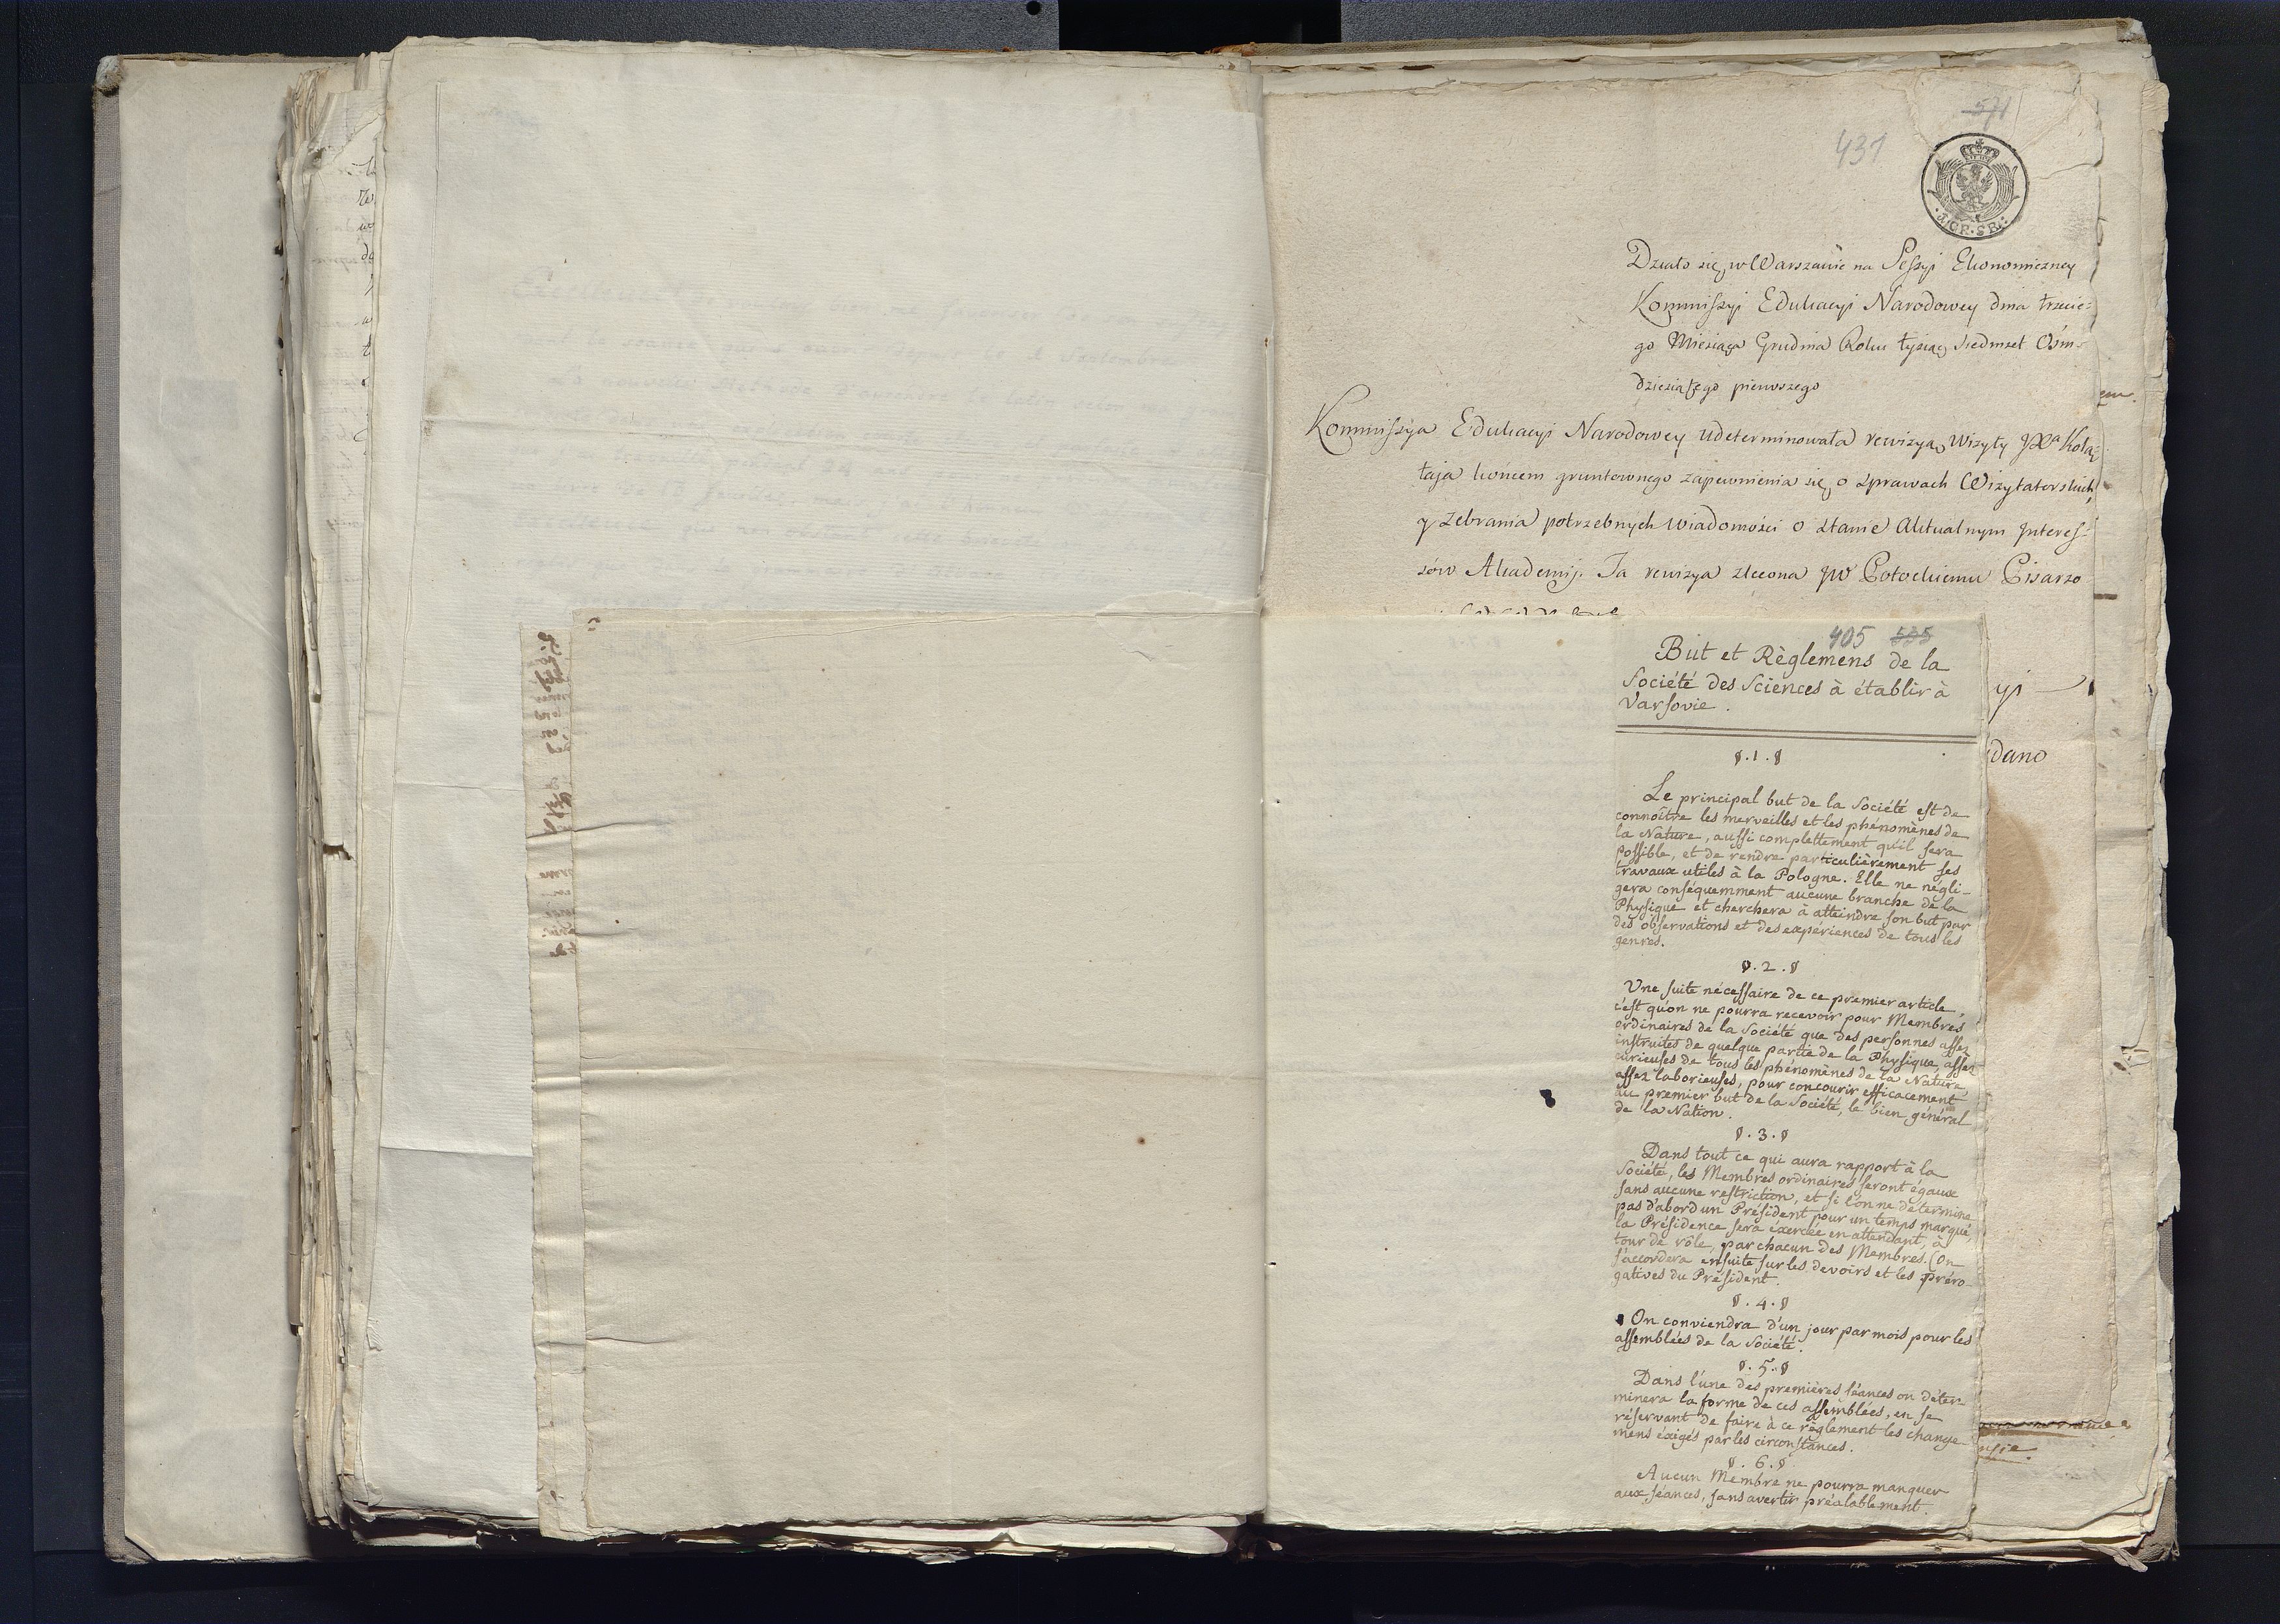 571
431
Działo się w Warszawie na Seſsyi Ekonomiczney
Kommiſsyi Edukacyi Narodowey dnia trzecie-
go Miesiąca Grudnia Roku tysiąc siedmset Ośm-
dziesiątego pierwszego
Kommiſsya Edukacyi Narodowey udeterminowała rewizyą Wizyty JXa Kołą-
taja końcem gruntownego zapewnienia się o sprawach Wizytatorskich,
y zebrania potrzebnych wiadomości o stanie aktualnym Intereſ-
sów Akademij. Ta rewizya zlecona JW Potockiemu Pisarzo
yi
dano
405 535
But et Règlemens de la
Société des Sciences à établir à
Varſovie.
§.1.§
Le principal but de la Société est de
connoître les merveilles et les phénomènes de
la Nature, auſſi complettement qu'il sera
poſſible, et de rendre particulièrement ses
travaux utiles à la Pologne. Elle ne négli-
gera conséquemment aucune branche de la
Phyſique et cherchera à atteindre ſon but par
des obſervations et des expériences de tous les
genres.
§.2.§
Une ſuite néceſſaire de ce premier article,
c'est qu'on ne pourra recevoir pour Membres
ordinaires de la Société que des personnes aſſez
instruites de quelque partie de la Phyſique, aſſez
curieuses de tous les phénomènes de la Nature,
aſſez laborieuſes, pour concourir efficacement
au premier but de la Société, le bien général
de la Nation.
§.3.§
Dans tout ce qui aura rapport à la
Société, les Membres ordinaires ſeront égaux
ſans aucune reſtriction, et ſi l'on ne détermine
pas d'abord un Préſident pour un temps marqué,
la Préſidence ſera exercée en attendant, à
tour de rôle, par chacun des Membres. On
s'accordera enſuite ſur les devoirs et les préro
gatives du Préſident.
§.4.§
On conviendra d'un jour par mois pour les
aſſemblées de la Société.
§.5.§
Dans l'une des premières ſéances on déter-
minera la forme de ces aſſemblées, en ſe
réſervant de faire à ce règlement les change-
mens éxigés par les circonſtances.
§.6.§
Aucun Membre ne pourra manquer
aux ſéances, ſans avertir préalablement.